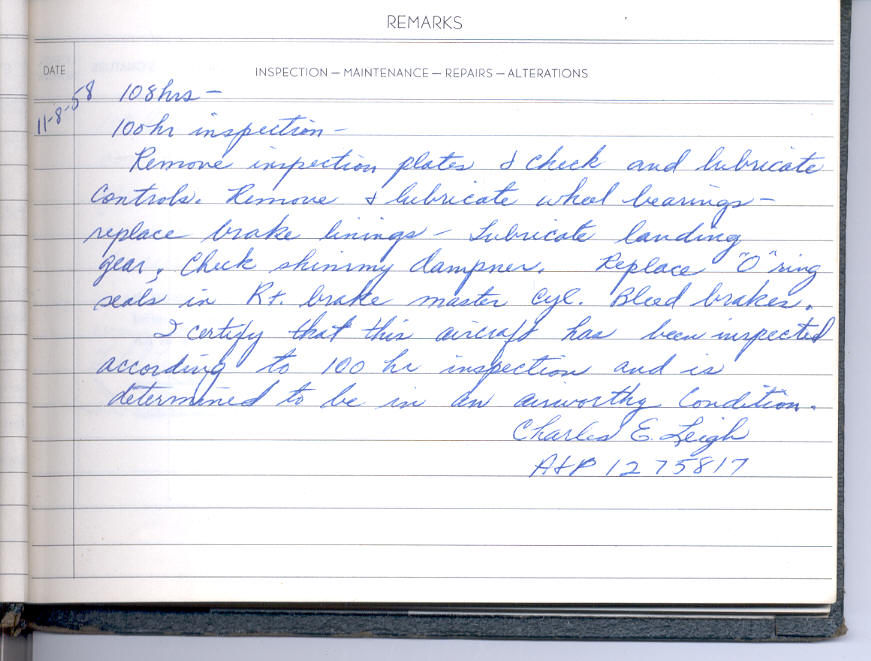 REMARKS
DATE
INSPECTION — MAINTENANCE — REPAIRS — ALTERATIONS
11-8-58 108 hrs —
100 hr inspection —
Remove inspection plates & check and lubricate
controls. Remove & lubricate wheel bearings —
replace brake linings — Lubricate landing
gear, Check shimmy dampner. Replace "O" ring
seals in Rt. brake master cyl. Bleed brakes.
I certify that this aircraft has been inspected
according to 100 hr inspection and is
determined to be in an airworthy Condition.
Charles E. Leigh
A&P 1275817